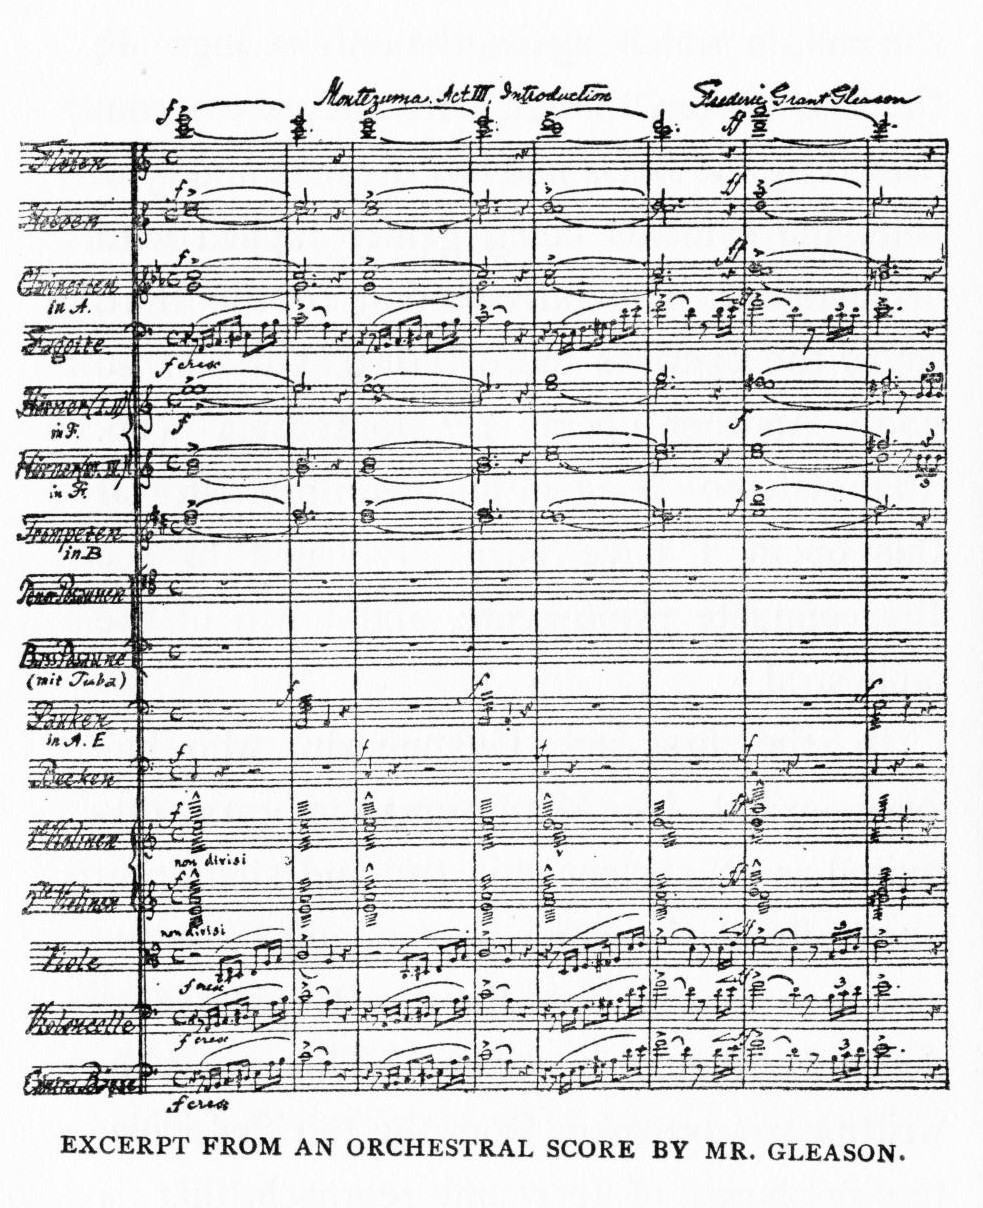 Montezuma. Act III, Introduction Frederic Grant Gleason
f
ff
Flöten
f
ff
Hoboen
f
ff
Clarinetten
in A.
Fagotte
f cresc
Hörner (I. II)
in F.
f
f
Hörner (III. IV.)
in F.
Trompeten
in B
f
Tenor Posaunen
Bass Posaune
(mit Tuba)
f
f
f
Pauken
in A. E
f
f
f
f
Becken
f
ff
1te Violinen
non divisi
f
ff
2te Violinen
non divisi
ff
3
Viole
f cresc
3
Violoncelle
f cresc
3
Contra Bässe
f cresc
EXCERPT FROM AN ORCHESTRAL SCORE BY MR. GLEASON.